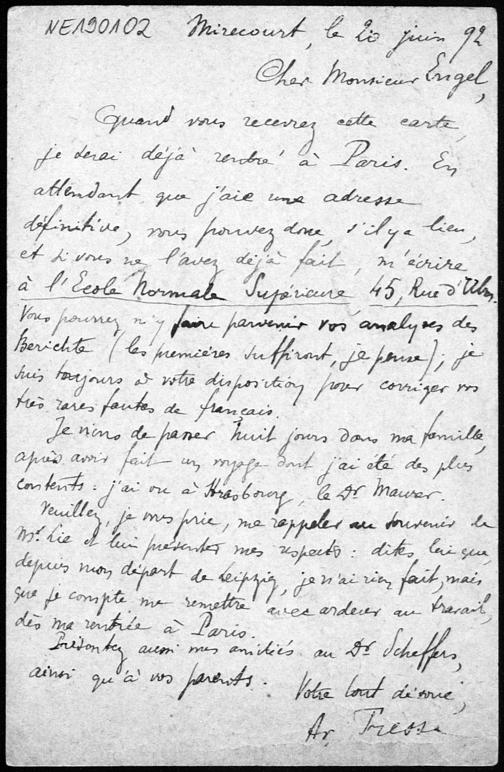 NE190102 Mirecourt, le 20 juin 92
Cher Monsieur Engel,
Quand vous recevrez cette carte,
je serai déjà rentré à Paris. En
attendant que j'aie une adresse
définitive, vous pouvez donc, s'il y a lieu,
et si vous ne l'avez déjà fait, m'écrire
à l'Ecole Normale Supérieure, 45, Rue d'Ulm.
Vous pourrez m'y faire parvenir vos analyses des
Berichte (les premières suffiront, je pense); je
suis toujours à votre disposition pour corriger vos
très rares fautes de français.
Je viens de passer huit jours dans ma famille,
après avoir fait un voyage dont j'ai été des plus
contents: j'ai vu à Strasbourg, le Dr Maurer.
Veuillez, je vous prie, me rappeler au souvenir de
Mr. Lie et lui présenter mes respects: dites lui que,
depuis mon départ de Leipzig, je n'ai rien fait, mais
que je compte me remettre avec ardeur au travail,
dès ma rentrée à Paris.
Présentez aussi mes amitiés au Dr Scheffers,
ainsi qu'à vos parents.
Votre tout dévoué,
Ar. Tresse